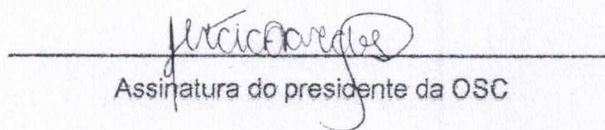 Assinatura do presidente da OSC